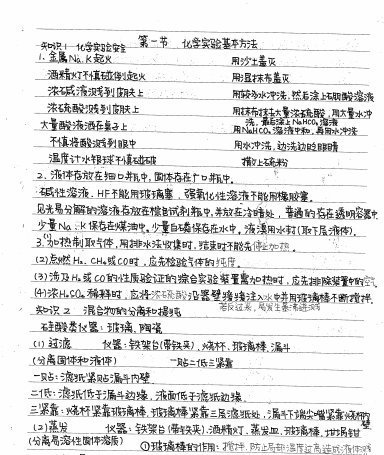 第一节 化学实验基本方法
知识1 化学实验安全
1.金属Na、K起火 用沙土盖灭
酒精灯不慎碰倒起火 用湿抹布盖灭
浓碱液溅到皮肤上 用较多水冲洗,然后涂上硼酸溶液
浓硫酸溅到皮肤上 用抹布抹去大量浓硫酸,用大量水冲洗,最后涂上NaHCO₃溶液
大量酸液洒在桌子上 用NaHCO₃溶液中和,再用水冲洗
不慎将酸溅到眼中 用水冲洗,边洗边眨眼睛
温度计水银球不慎碰破 撒上硫粉
2.液体存放在细口瓶中,固体存在广口瓶中。
碱性溶液、HF不能用玻璃塞,强氧化性溶液不能用橡胶塞。
见光易分解的溶液存放在棕色试剂瓶中,并放在冷暗处,普通的存在透明容器中
少量Na、K保存在煤油中。少量白磷保存在水中。液溴用水封(取下层液体)。
3.(1)加热制取气体,用排水法收集时,结束时不能先停止加热。
(2)点燃H₂、CH₄或CO时,应先检验气体的纯度。
(3)涉及H₂或CO的性质验证的综合实验装置需加热时,应先排除装置中的空气
(4)浓H₂SO₄稀释时,应将浓硫酸沿器壁慢慢注入水中并用玻璃棒不断搅拌.
若反过来,易发生沸腾迸溅
知识2 混合物的分离和提纯
硅酸盐仪器:玻璃、陶瓷
(1)过滤 仪器:铁架台(带铁火)、烧杯、玻璃棒、漏斗
(分离固体和液体) 一贴二低三紧靠
一贴:滤纸紧贴漏斗内壁
二低:滤纸低于漏斗边缘,液面低于滤纸边缘
三紧靠:烧杯紧靠玻璃棒,玻璃棒紧靠三层滤纸处,漏斗下端尖嘴紧靠烧杯内壁
(2)蒸发 仪器:铁架台(带铁夹)、酒精灯、蒸发皿、玻璃棒、坩埚钳
(分离易溶性固体溶质) ①玻璃棒的作用:搅拌,防止局部温度过高造成液体溅